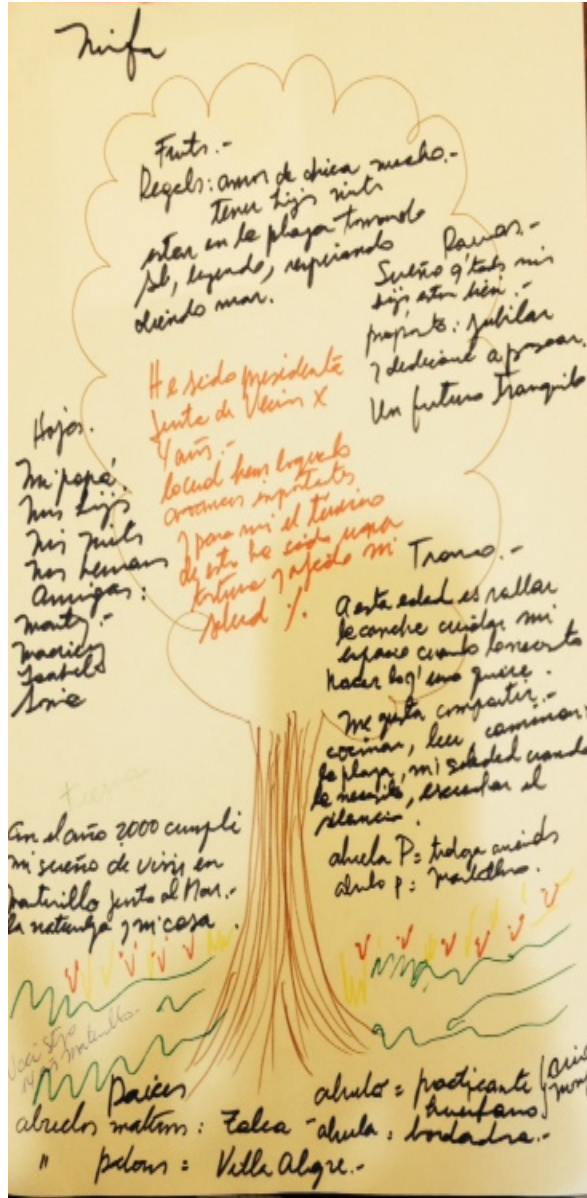 Ninfa
Fruts.-
Regals: amor de chica mucho.-
tener hijs niets
estar en la playa tomando
sol, leyendo, respirando
oliendo mar.
Ramas.-
Sueño q' tods mis
hijs esten bien.-
proposito: jubilar
y dedicarme a pasear.
Un futuro tranquilo
He sido presidenta
Junta de Vecins x
4 años.-
lo cual hems logrado
avances importates
y para mi el termino
de esto ha sido una
tortura y afecto mi
salud
Hojas.
Mi papá.
Mis hijs
Mis niets
Mis hermans
Amigas:
Isabel
Tronco.-
A esta edad es rallar
la cancha cuidar mi
espacio cuando lo necesito
hacer lo q' uno quiere.
Me gusta compartir.-
cocinar, leer, caminar,
la playa, mi soledad cuando
la necesito, escuchar el
silencio.
abuela P = trabaja
abulo p =
tierra
En el año 2000 cumpli
mi sueño de vivir en
junto al Mar.-
la naturaleza y mi casa.
14
Raices
abuelos materns: Talca - abuela: bordadora.-
abuelo = practicante
huerfano
" paterns = Villa Alegre.-